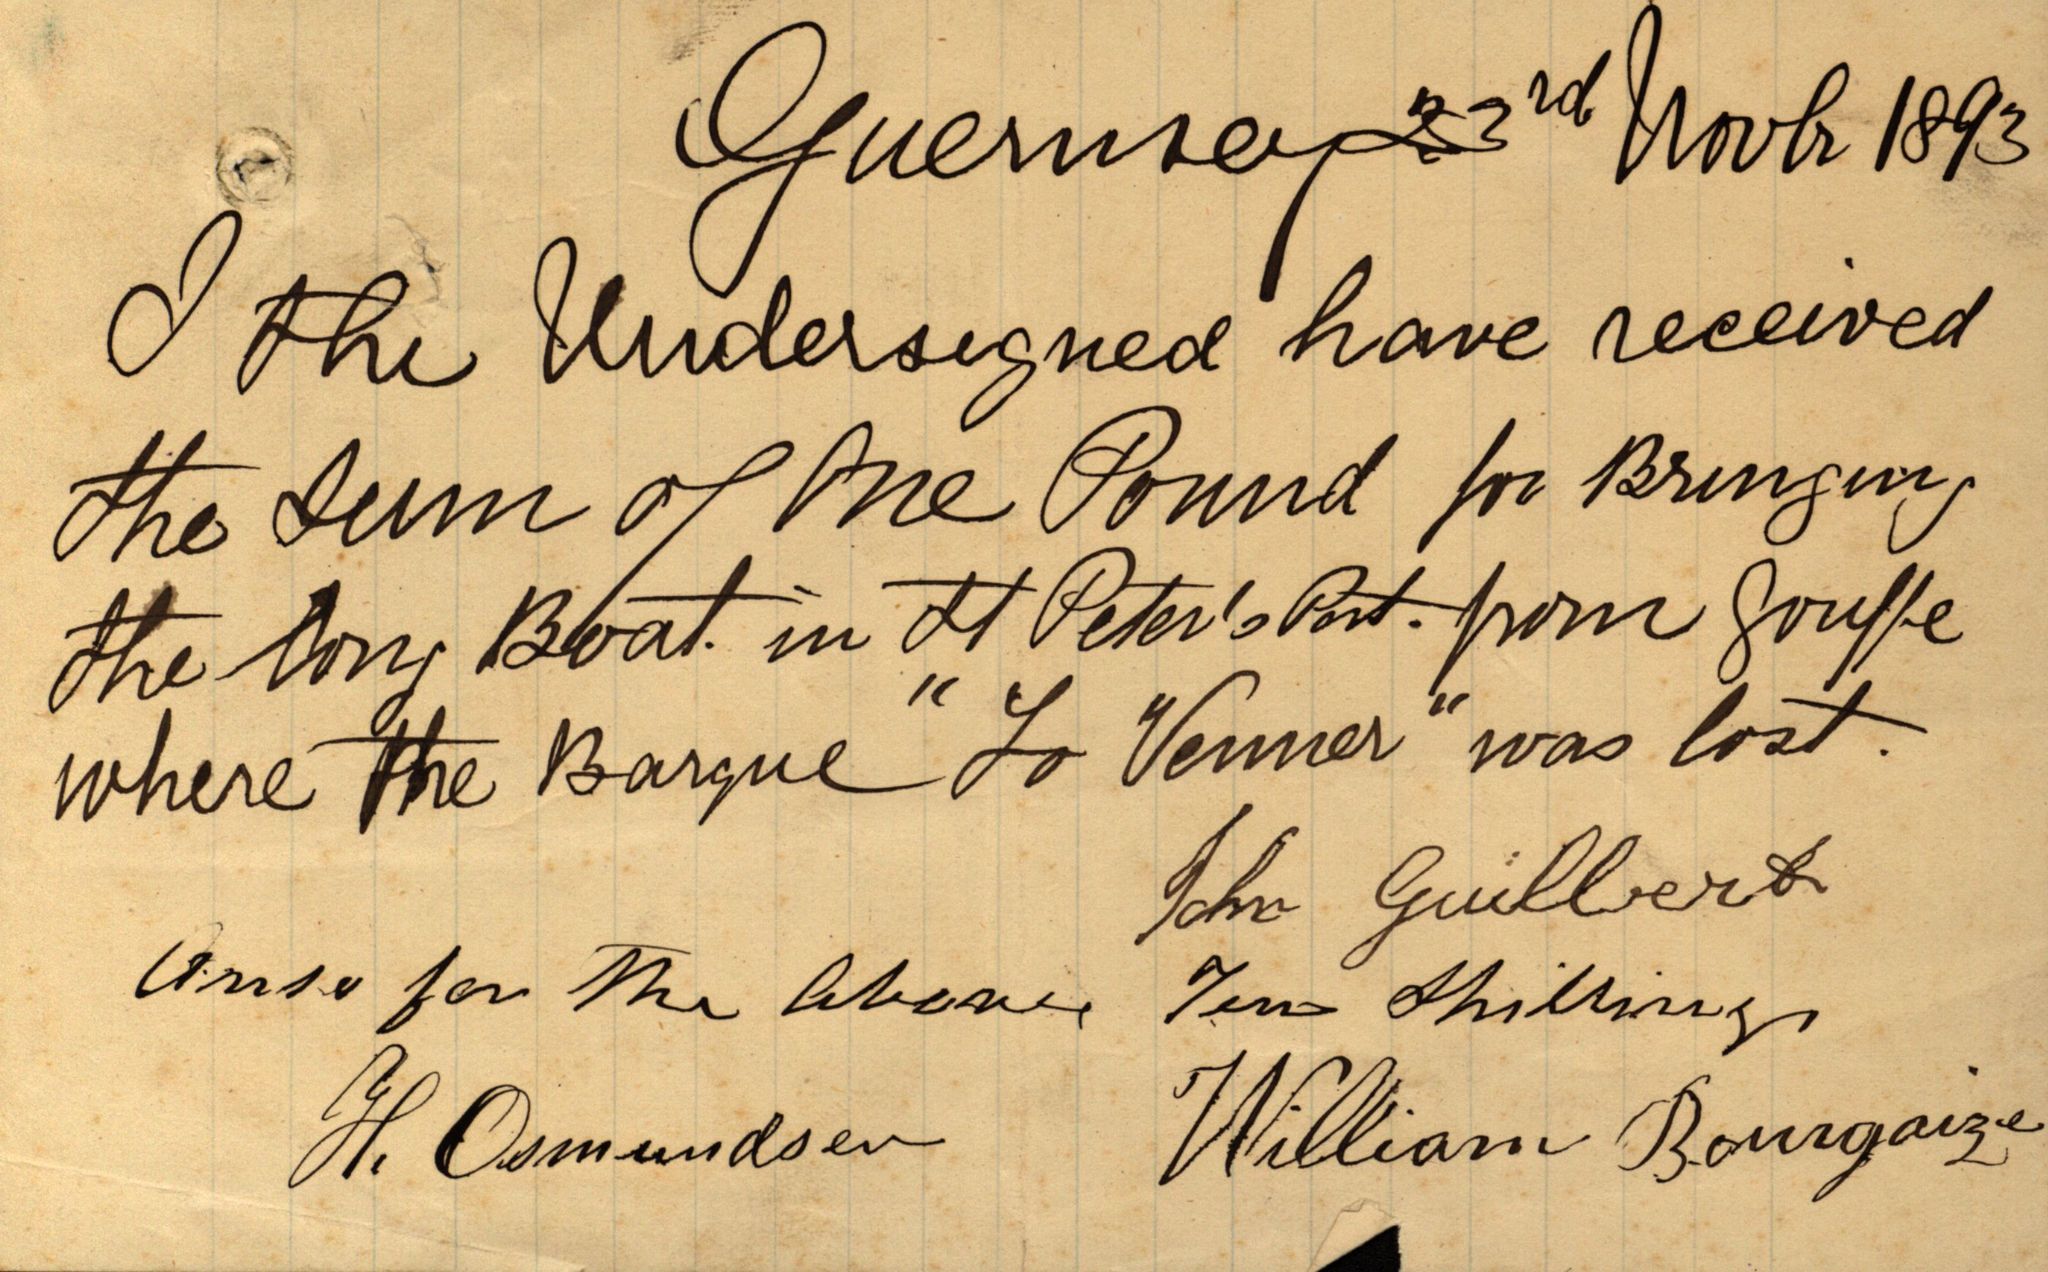 Guernsey 23rd Novbr 1893
I the Undersigned have received
the sum of One Pound for Bringing
the long Boat. in St Peter's Port. from Gouffe
where the Barque "To Venner" was lost.
John Guilbert
for the above Ten Shillings
H. Osmundsen William Bourgaize